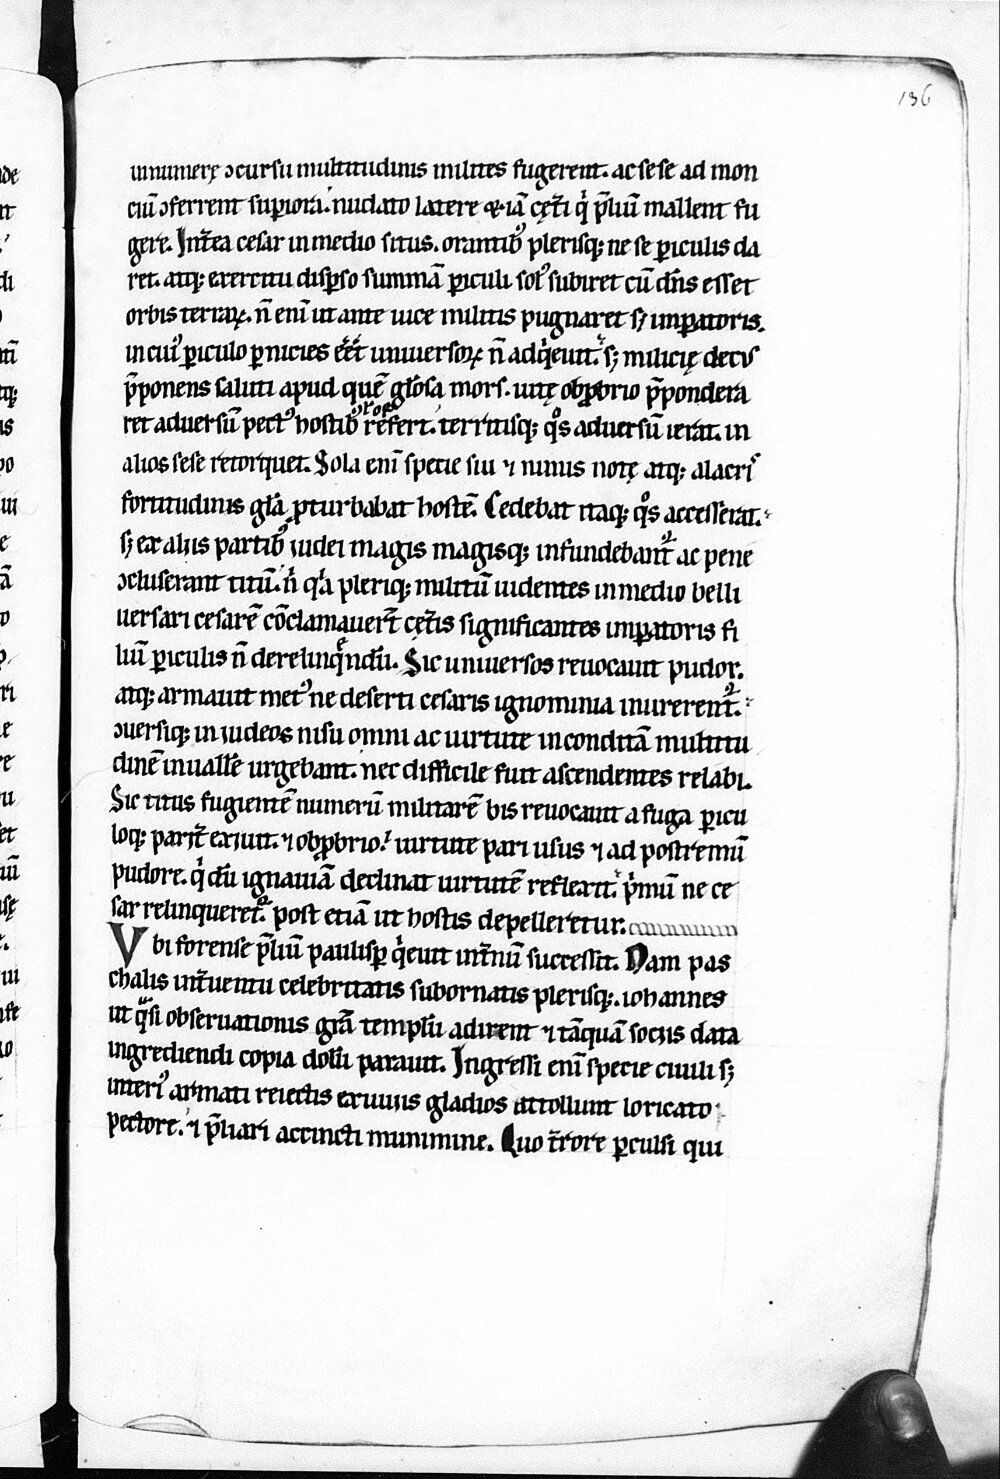 136
innumerę ↄcursu multitudinis milites fugerent. ac sese ad mon
ciū ↄferrent supiora. nudato latere &. iā cęt̄i q̇ p̄liū mallent fu
gere. Int̄ea cesar in medio situs. orantib; plerisq; ne se ꝑiculis da
ret. atq; exercitu disꝑso summā ꝑiculi sol᷒ subiret cū dn̄s esset
orbis terraꝝ. n̄ eni ut ante uice militis pugnaret sꝫ imꝑatoris.
in cui᷒ ꝑiculo ꝑnicies eēt uniuersoꝝ n̄ adq̇euit. sꝫ milicię decus
p̄ponens saluti apud quē glōsa mors. uitę obꝓbrio p̄pondera
ret aduersū pect᷒ hostib; refert. territisq; q̊s aduersū ierat. in
alios sese retorquet. Sola eni specie sui ⁊ nimis notę atq; alacris
fortitudinis glā ꝓturbabat hostē. Cedebat itaq; q̊s accesserat.
sꝫ ex aliis partib; iudei magis magisq; infundebant᷑ ac pene
ↄcluserant titū. n̄ qa pleriq; militū uidentes in medio belli
uersari cesarē cōclamauert̄ cęt̄is significantes imꝑatoris fi
liū ꝑiculis n̄ derelinquendū. Sic uniuersos reuocauit pudor.
atq; armauit met᷒ ne deserti cesaris ignominia inurerent᷑.
ↄuersiq; in iudeos nisu omni ac uirtute inconditā multitu
dinē in uallē urgebant. nec difficile fuit ascendentes relabi.
Sic titus fugientē numerū militarē bis reuocauit a fuga ꝑicu
loq; parit̄ exuit. ⁊ obꝓbrio. uirtute pari usus ⁊ ad postremū
pudore. q̇ dū ignauiā declinat uirtutē reflexit. p̄mū ne ce
sar relinqueret᷑. post etiā ut hostis depelleretur.
Vbi forense p̄liū paulisꝑ q̇euit int̄nū successit. Nam pas
chalis int̄uentu celebritatis subornatis plerisq;. iohannes
ut quasi obseruationis grā templū adirent ⁊ tāquā sociis data
ingrediendi copia dolū parauit. Ingressi eni specie ciuili sꝫ
interi᷒ armati reiectis exuuiis gladios attollunt loricato
pectore. ⁊ p̄liari accincti munimine. Quo t̄rore ꝑculsi qui